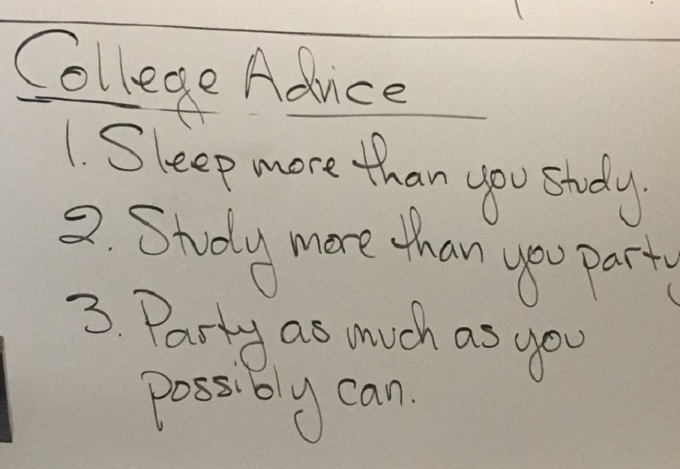 College Advice
1. Sleep more than you study.
2. Study more than you party
3. Party as much as you
possibly can.